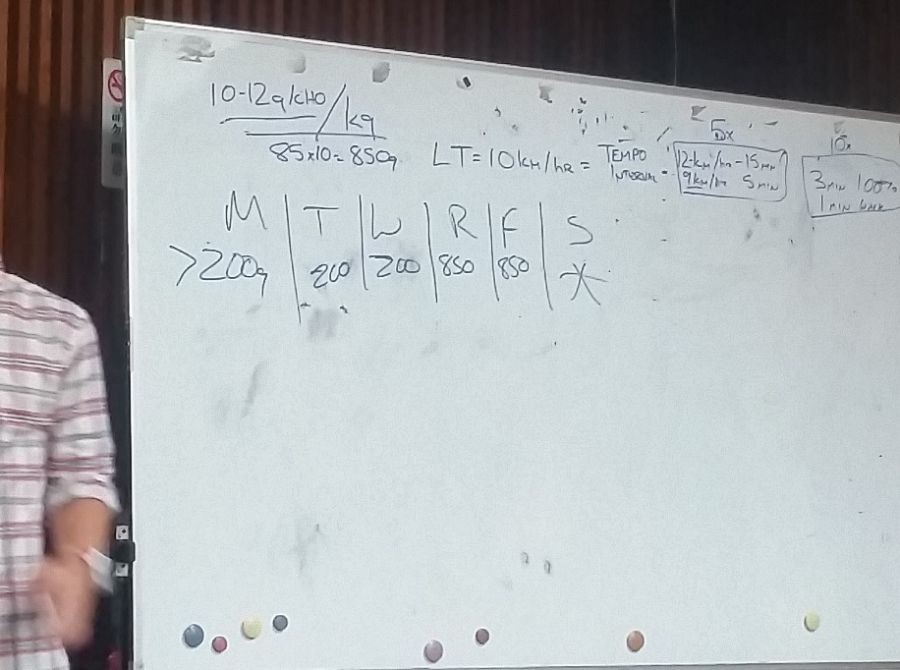 10-12g/CHO/kg
85x10=850g
LT=10km/hr = TEMPO
INTERVAL =
5x
12km/hr-15min
9km/hr 5min
10x
3min 100%
1min WALK
M | T | W | R | F | S
>200g | 200 | 200 | 850 | 850 | *